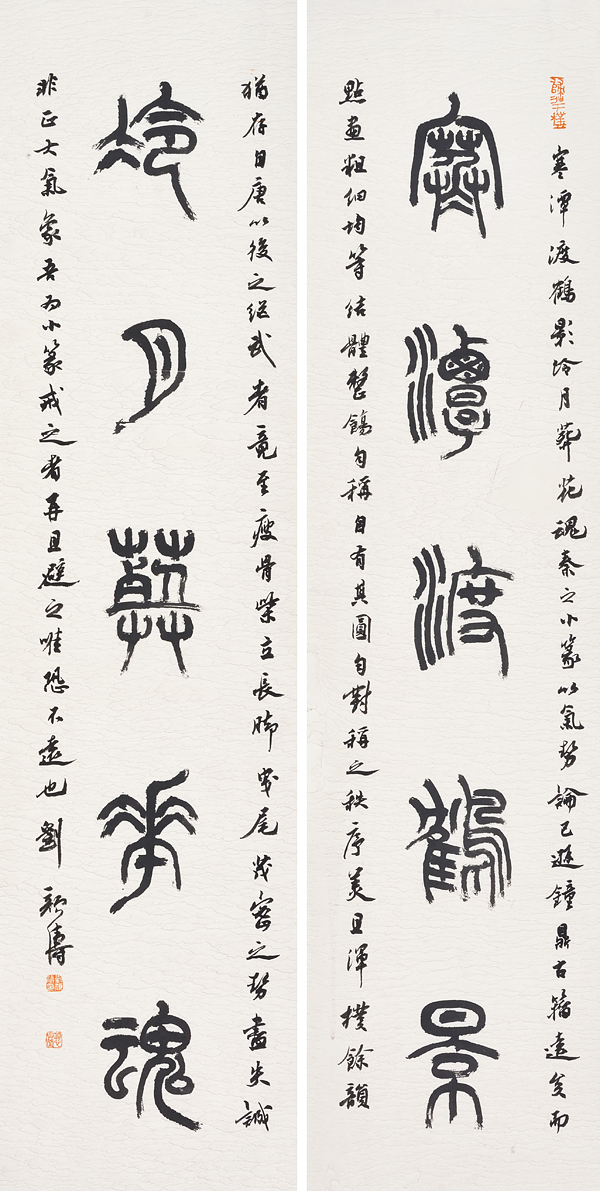 寒潭渡鶴影冷月葬花魂秦之小篆以氣勢論已遜鐘鼎古籀遠矣而
寒潭渡鶴景
點畫粗細均等結體整飭勻稱自有其圓勻對稱之秩序美且渾樸餘韻
猶存自唐以後之继武者竟至瘦骨柴立長脚曳尾茂密之勢盡失誠
冷月葬華魂
非正大氣象吾为小篆戒之者再且避之唯恐不遠也劉顏濤